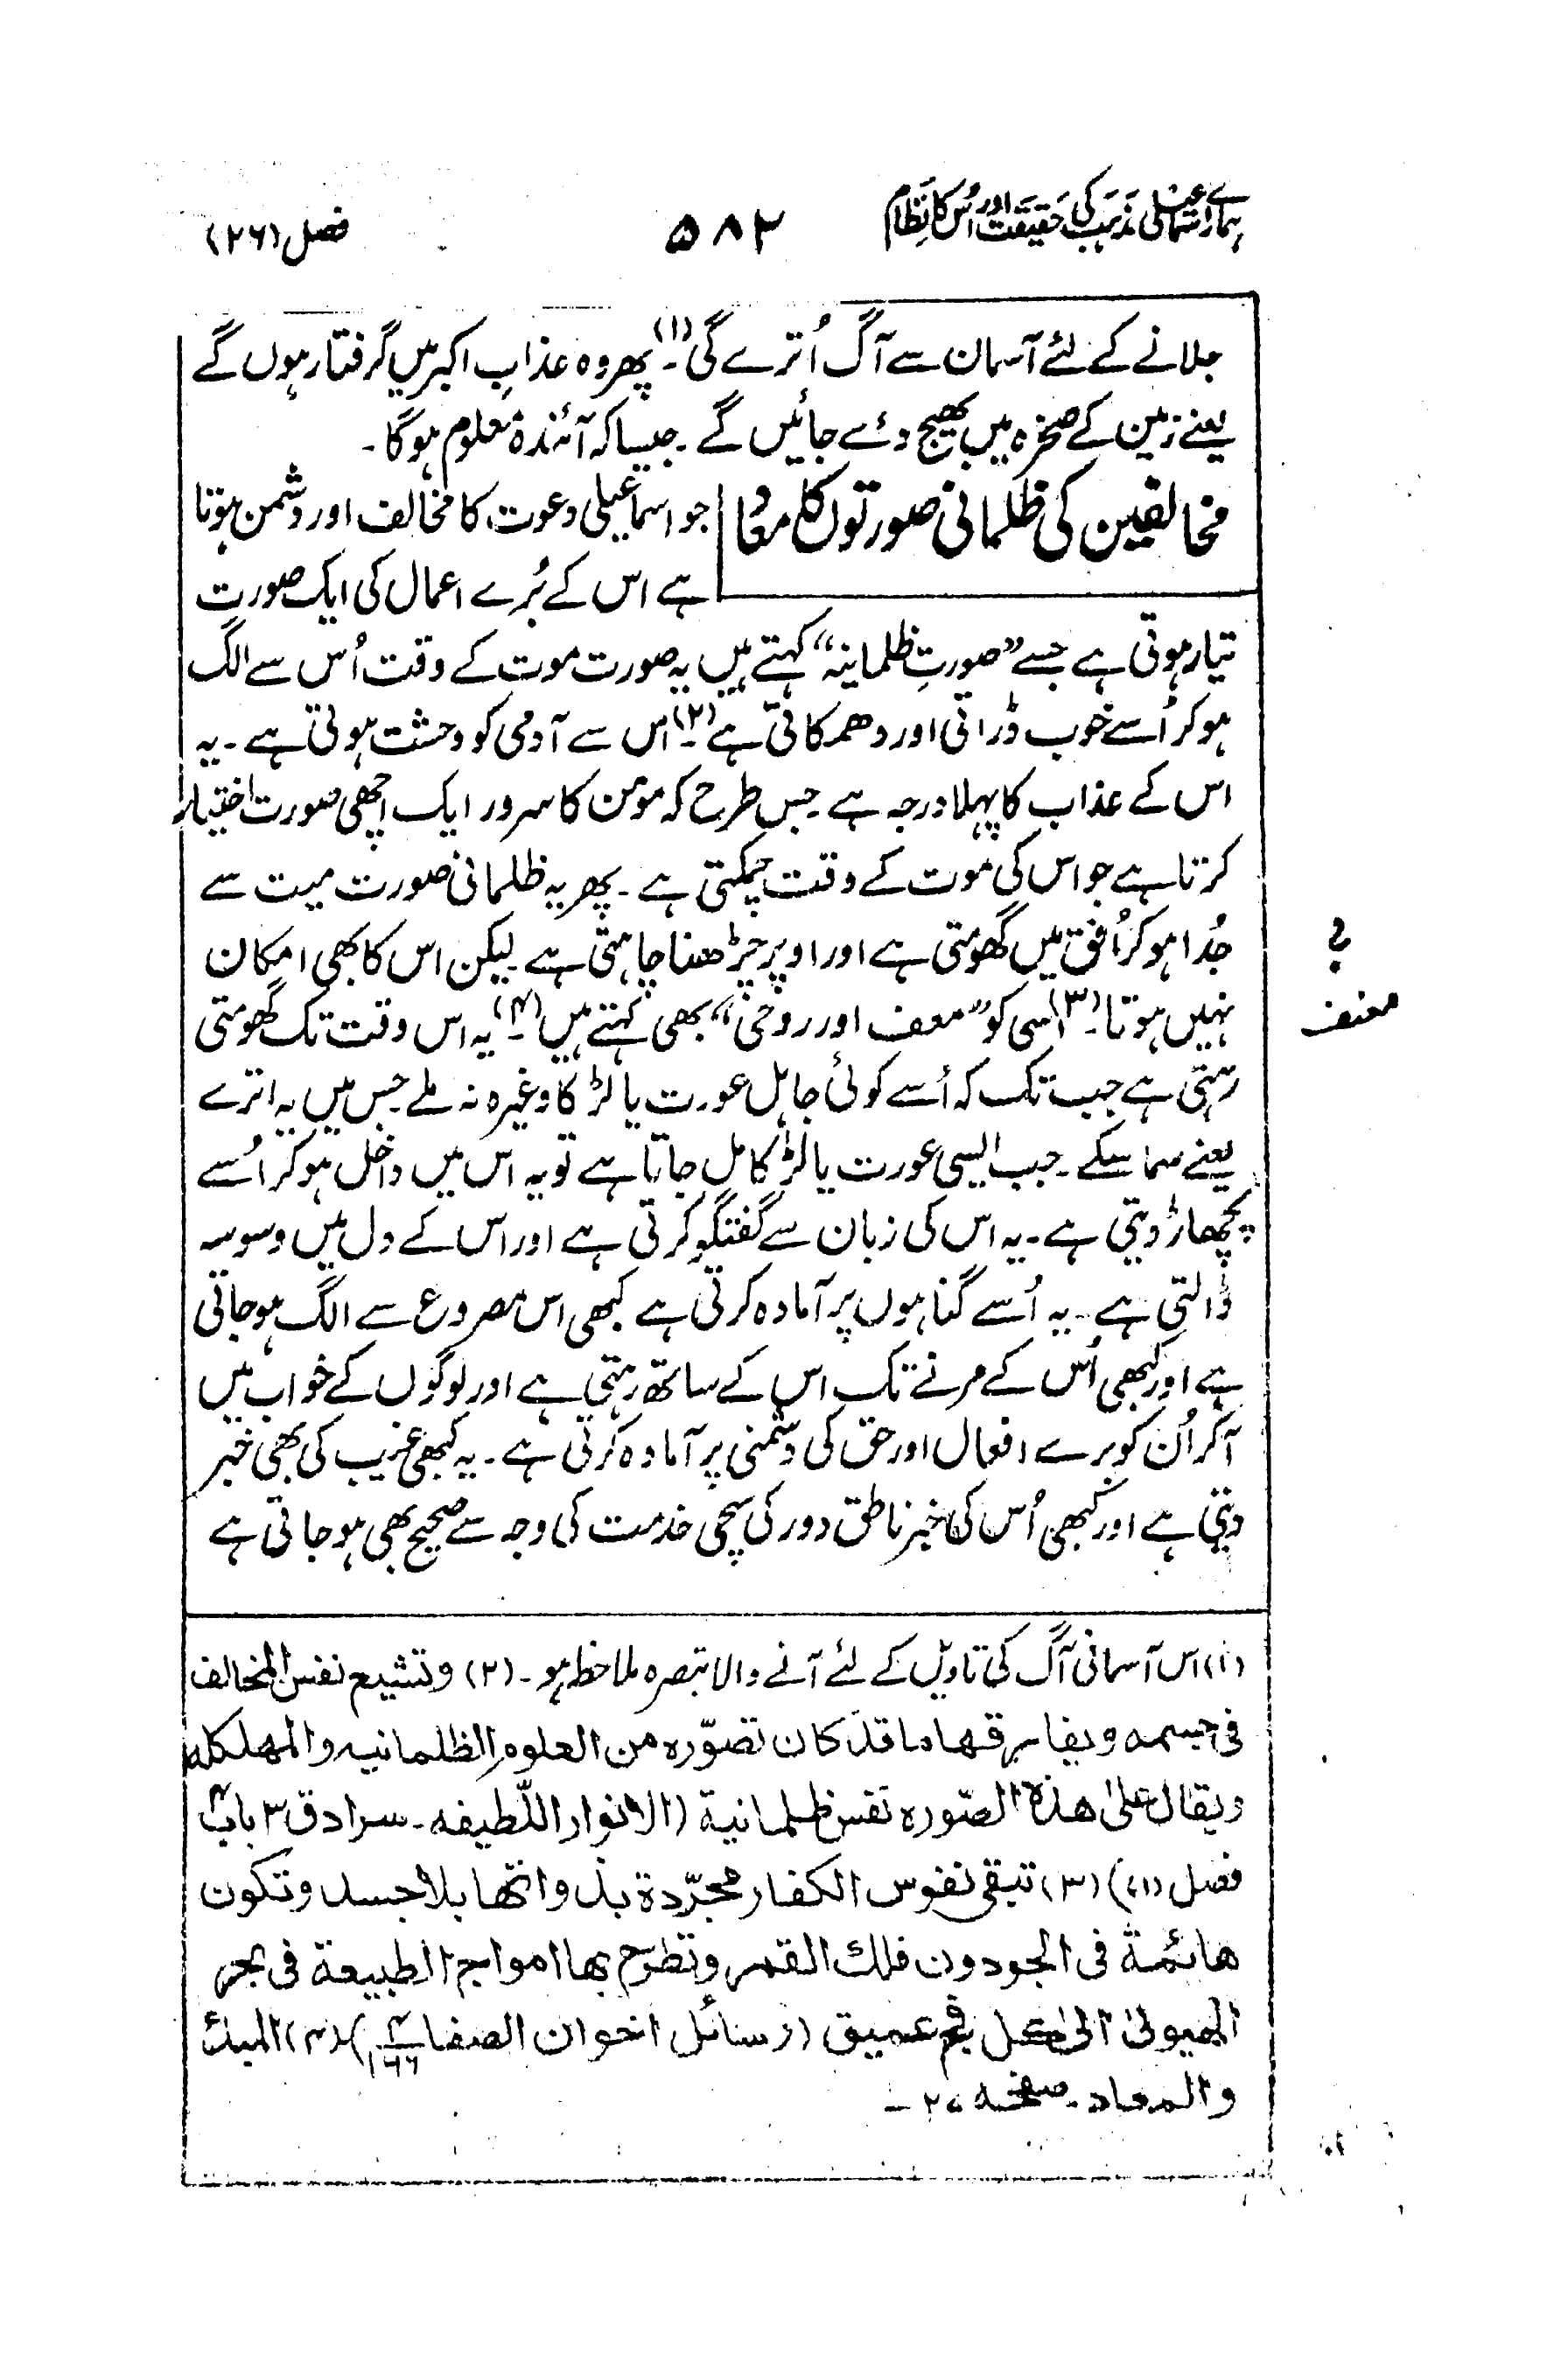 ہمارے اسماعیلی مذہب کی حقیقت اور اُس کا نظام
۵۸۲
فصل (۲۶)
جلانے کے لئے آسمان سے آگ اُترے گی (۱)۔ پھر وہ عذابِ اکبر میں گرفتار ہوں گے
یعنے زمین کے صخرہ میں بھیج دئے جائیں گے ۔ جیسا کہ آئندہ معلوم ہوگا ۔
مخالفین کی ظلمانی صورتوں کا معاد
جو اسماعیلی دعوت کا مخالف اور دشمن ہوتا
ہے اس کے بُرے اعمال کی ایک صورت
تیار ہوتی ہے جسے ”صورتِ ظلمانیہ“ کہتے ہیں یہ صورت موت کے وقت اُس سے الگ
ہو کر اُسے خوب ڈراتی اور دھمکاتی ہے (۲)۔ اس سے آدمی کو وحشت ہوتی ہے ۔ یہ
اس کے عذاب کا پہلا درجہ ہے ۔ جس طرح کہ مومن کا سرور ایک اچھی صورت اختیار
کرتا ہے جو اس کی موت کے وقت چمکتی ہے ۔ پھر یہ ظلمانی صورت میت سے
جُدا ہو کر اُفق میں گھومتی ہے اور اوپر چڑھنا چاہتی ہے ۔ لیکن اس کا بھی امکان
نہیں ہوتا ۔ (۳) اسی کو ”معف اور روخی“ بھی کہتے ہیں (۴)۔ یہ اس وقت تک گھومتی
؟
معنف
رہتی ہے جب تک کہ اُسے کوئی جاہل عورت یا لڑکا وغیرہ نہ ملے جس میں یہ اترے
یعنے سما سکے ۔ جب ایسی عورت یا لڑکا مل جاتا ہے تو یہ اس میں داخل ہو کر اُسے
پچھاڑ دیتی ہے ۔ یہ اس کی زبان سے گفتگو کرتی ہے اور اس کے دل میں وسوسہ
ڈالتی ہے ۔ یہ اُسے گناہوں پر آمادہ کرتی ہے کبھی اس مصروع سے الگ ہو جاتی
ہے اور کبھی اُس کے مرنے تک اس کے ساتھ رہتی ہے اور لوگوں کے خواب میں
آ کر اُن کو برے افعال اور حق کی دشمنی پر آمادہ کرتی ہے ۔ یہ کبھی غیب کی بھی خبر
دیتی ہے اور کبھی اُس کی خبر ناطق دور کی سچی خدمت کی وجہ سے صحیح بھی ہو جاتی ہے
(۱) اس آسمانی آگ کی تاویل کے لئے آنے والا تبصرہ ملاحظہ ہو ۔ (۲) وتشیع نفس المخالف
فی جسمه ویفارقها ما قد کان تصوّره من العلوم الظلمانیه والمهلکله
ویقال علیٰ هذه الصّوره نفس ظلمانیة (الانوار اللّطیفه ۔ سرادق ۳ باب ۴
فصل (۱)) (۳) تبقی نفوس الکفار مجرّدة بذواتها بلا جسد وتکون
هائمة فی الجو دون فلك القمر وتطرح بها امواج الطبیعة فی بحر
الهیولیٰ الیٰ کل فج عمیق (رسائل اخوان الصفا ۴/۱۶۶) (۴) المبدأ
والمعاد ۔ صفحه ۲۰ ۔